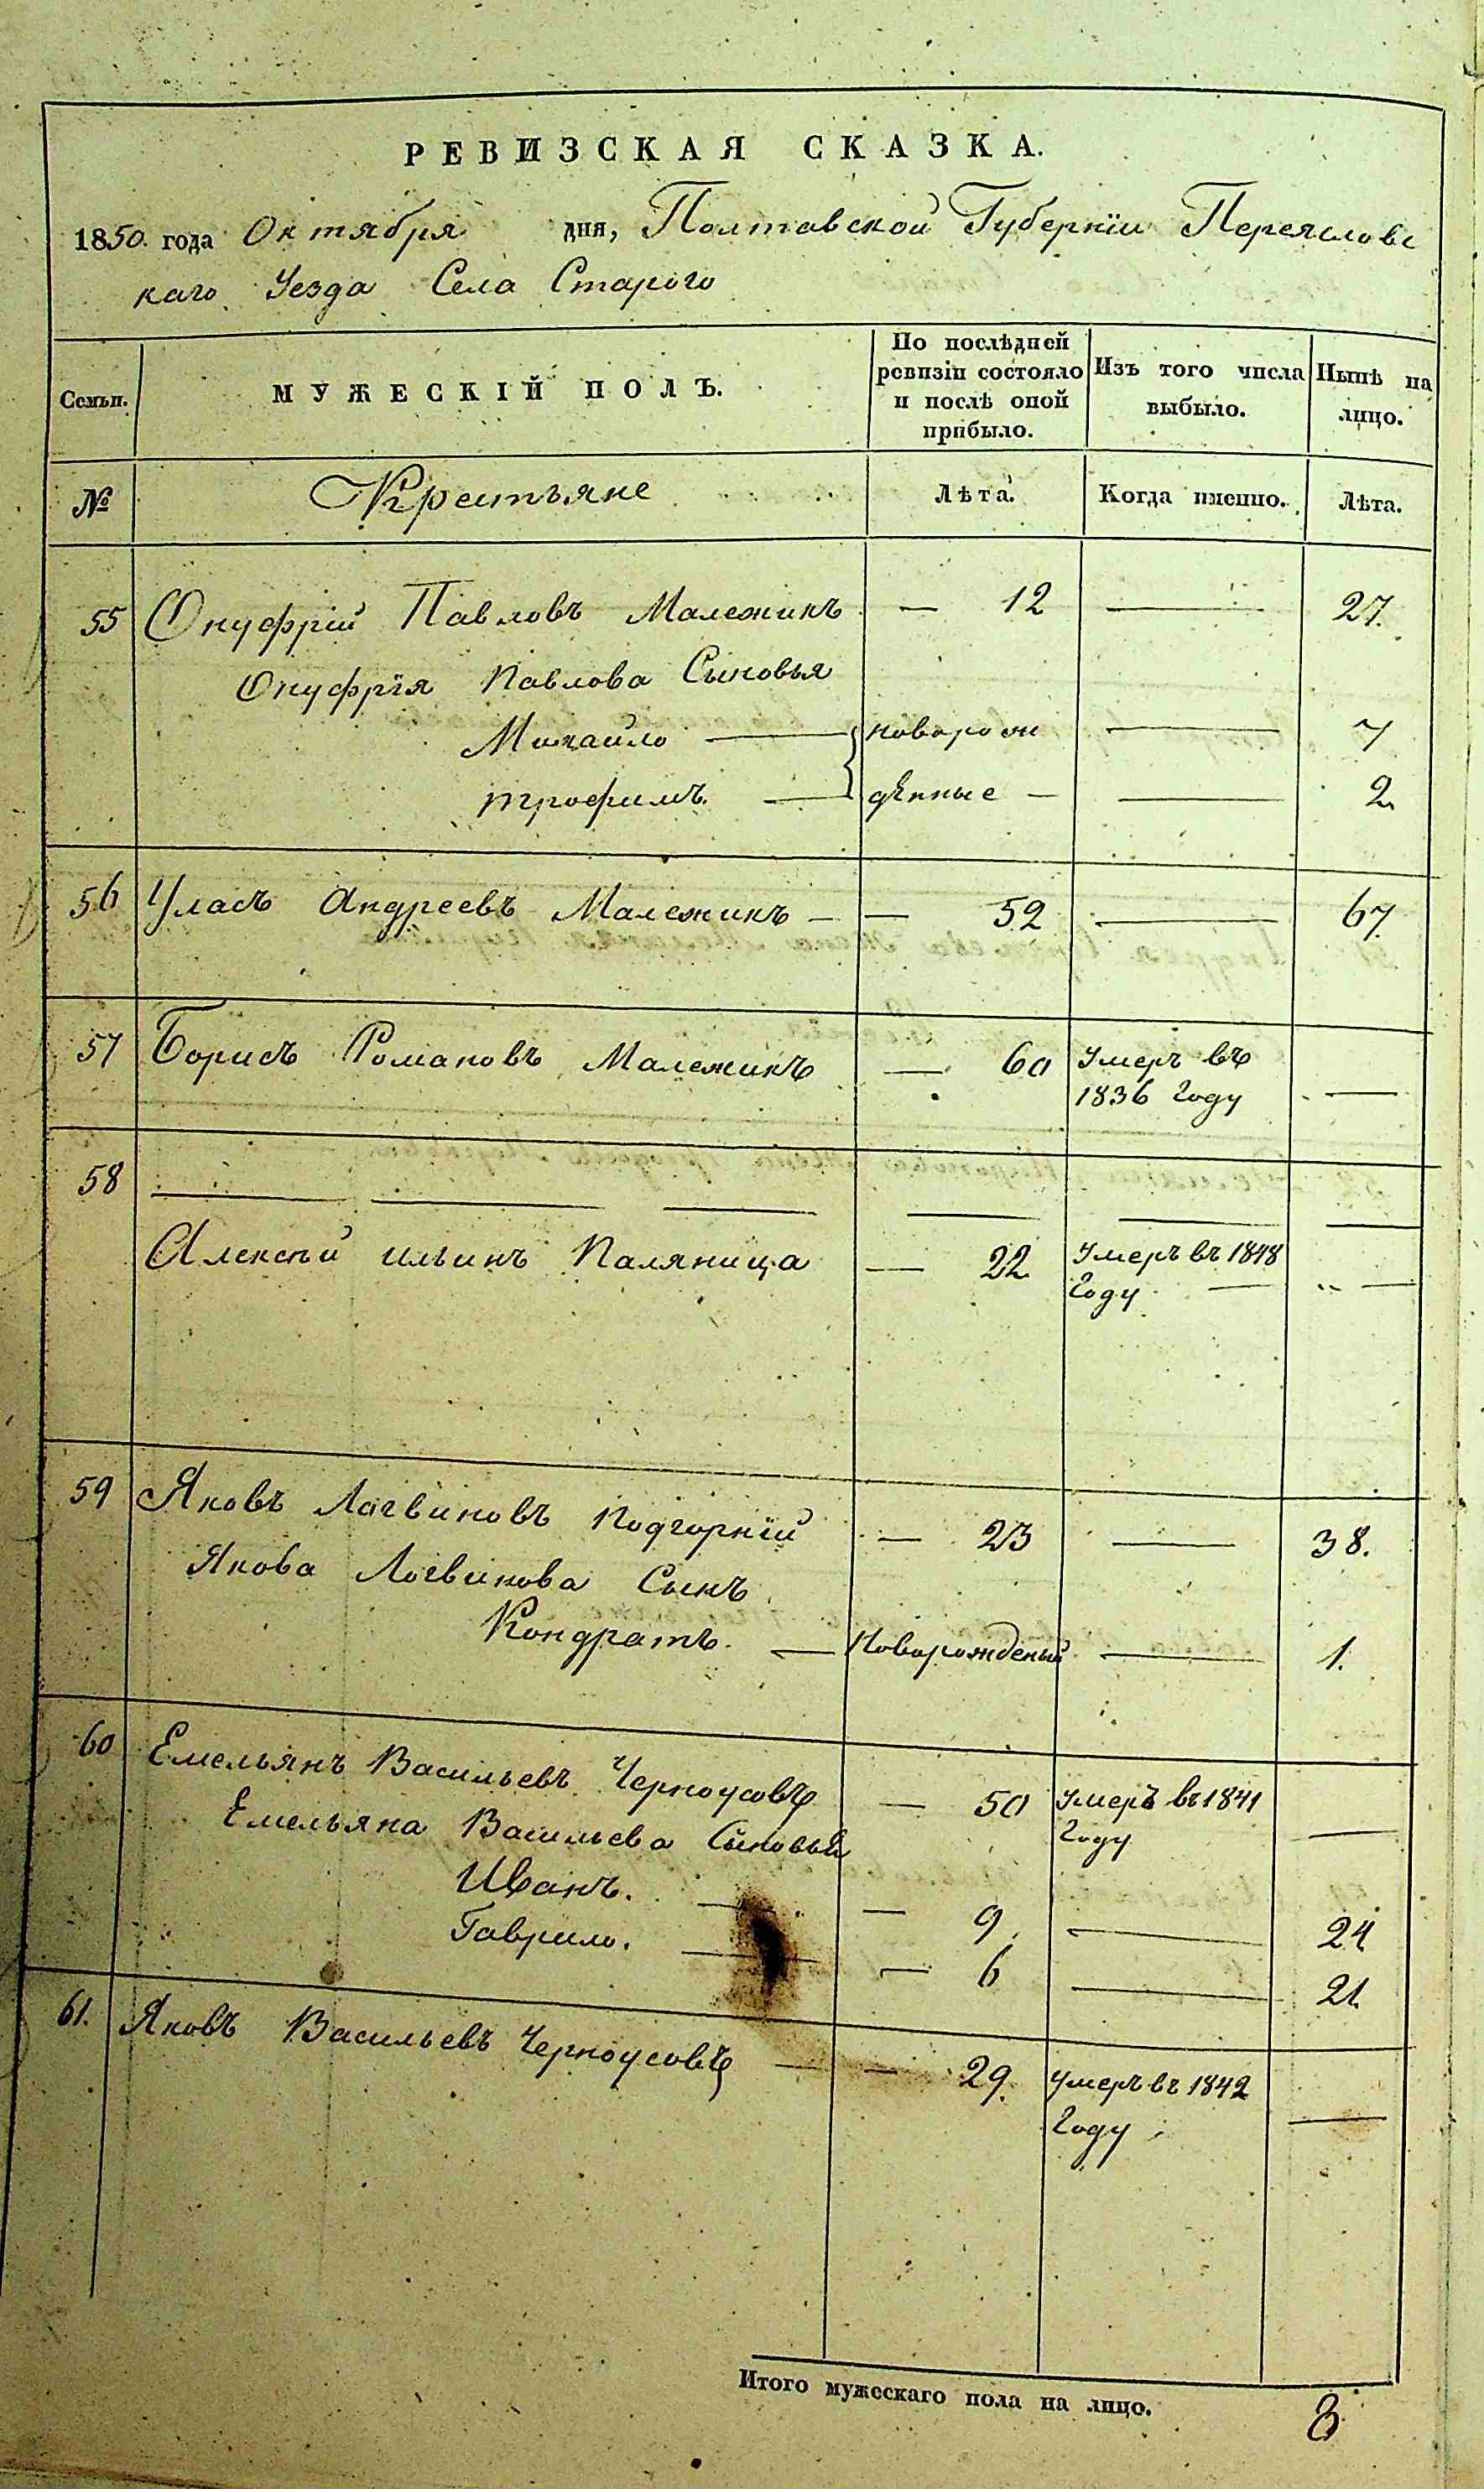 РЕВИЗСКАЯ СКАЗКА.
1850. года Октября дня, Полтавской Губерніи Переяславс
каго Уезда Села Старого
Семьи. МУЖЕСКІЙ ПОЛЪ. По послѣдней ревизіи состояло и послѣ оной прибыло. Изъ того числа выбыло. Нынѣ на лицо.
№ Крестьяне Лѣта. Когда именно. Лѣта.
55 Онуфрій Павловъ Малежикъ — 12 — 27.
Онуфрія Павлова Сыновья
Михайло — новорож — 7
трофимъ. — дѣнные — — 2
56 Уласъ Андреевъ Малежикъ — — 52 — 67
57 Борисъ Романовъ Малежикъ — 60 Умеръ въ
1836 Году —
58 — — — — — —
Алексѣй ильинъ Паляница — 22 Умеръ въ 1848
Году — „ —
59 Яковъ Логвиновъ Подгорній — 23 — 38.
Якова Логвинова Сынъ
Кондратъ. — Новорожденый — 1.
60 Емельянъ Васильевъ Черноусовъ — 50 Умеръ въ 1841
Году —
Емельяна Васильева Сыновья
Иванъ. — — 9 — 24
Гаврило. — — 6 — 21
61. Яковъ Васильевъ Черноусовъ — — 29. умеръ въ 1842
Году —
Итого мужескаго пола на лицо. 8